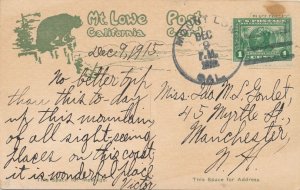 Mt Lowe Post
California Card
Dec 9, 1915
MOUNT LOWE
DEC
9
CAL.
1 1
No better trip
than this to-day
up this mountain
of all sight seeing
places on this coast
it is wonderful place
Victor
Miss. Lea M. L. Goulet,
45 Myrtle St,
Manchester,
N.H.
This Space for Address.